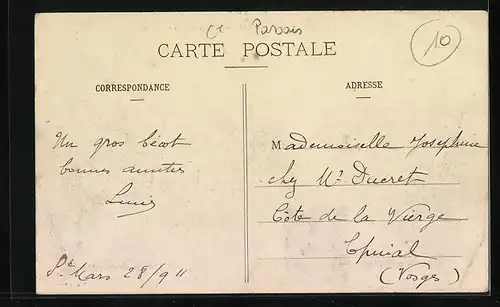 CARTE POSTALE
10
CORRESPONDANCE
ADRESSE
Un gros bécot
bonnes amitiés
Mademoiselle Josephine
chez Mr Ducret
Côte de la Vierge
Epinal
(Vosges)
Mars 28/9 11